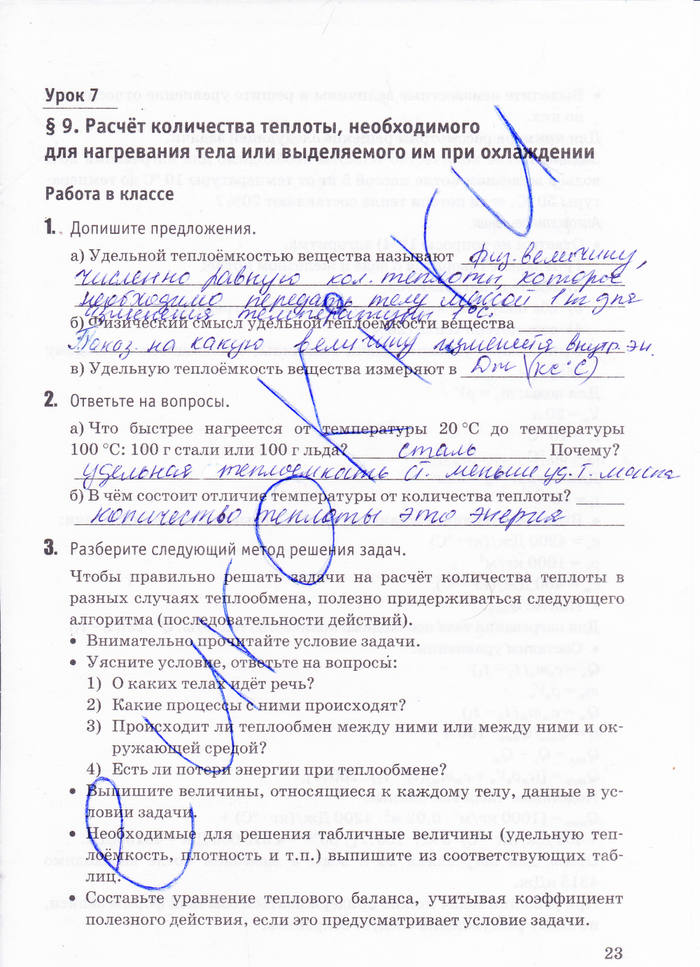 Урок 7
§ 9. Расчёт количества теплоты, необходимого
для нагревания тела или выделяемого им при охлаждении
Работа в классе
1. Допишите предложения.
а) Удельной теплоёмкостью вещества называют физ. величину,
численно равную кол. теплоты, которое
необходимо передать телу массой 1 кг для
изменения температуры 1°С.
б) Физический смысл удельной теплоёмкости вещества
Показ. на какую величину изменяется внутр. эн.
в) Удельную теплоёмкость вещества измеряют в Дж \ (кг°С)
2. Ответьте на вопросы.
а) Что быстрее нагреется от температуры 20 °С до температуры
100 °С: 100 г стали или 100 г льда? сталь Почему?
удельная теплоемкость ст. меньше уд. т.
б) В чём состоит отличие температуры от количества теплоты?
количество теплоты это энергия
3. Разберите следующий метод решения задач.
Чтобы правильно решать задачи на расчёт количества теплоты в
разных случаях теплообмена, полезно придерживаться следующего
алгоритма (последовательности действий).
• Внимательно прочитайте условие задачи.
• Уясните условие, ответьте на вопросы:
1) О каких телах идёт речь?
2) Какие процессы с ними происходят?
3) Происходит ли теплообмен между ними или между ними и ок-
ружающей средой?
4) Есть ли потери энергии при теплообмене?
• Выпишите величины, относящиеся к каждому телу, данные в ус-
ловии задачи.
• Необходимые для решения табличные величины (удельную теп-
лоёмкость, плотность и т.п.) выпишите из соответствующих таб-
лиц.
• Составьте уравнение теплового баланса, учитывая коэффициент
полезного действия, если это предусматривает условие задачи.
23